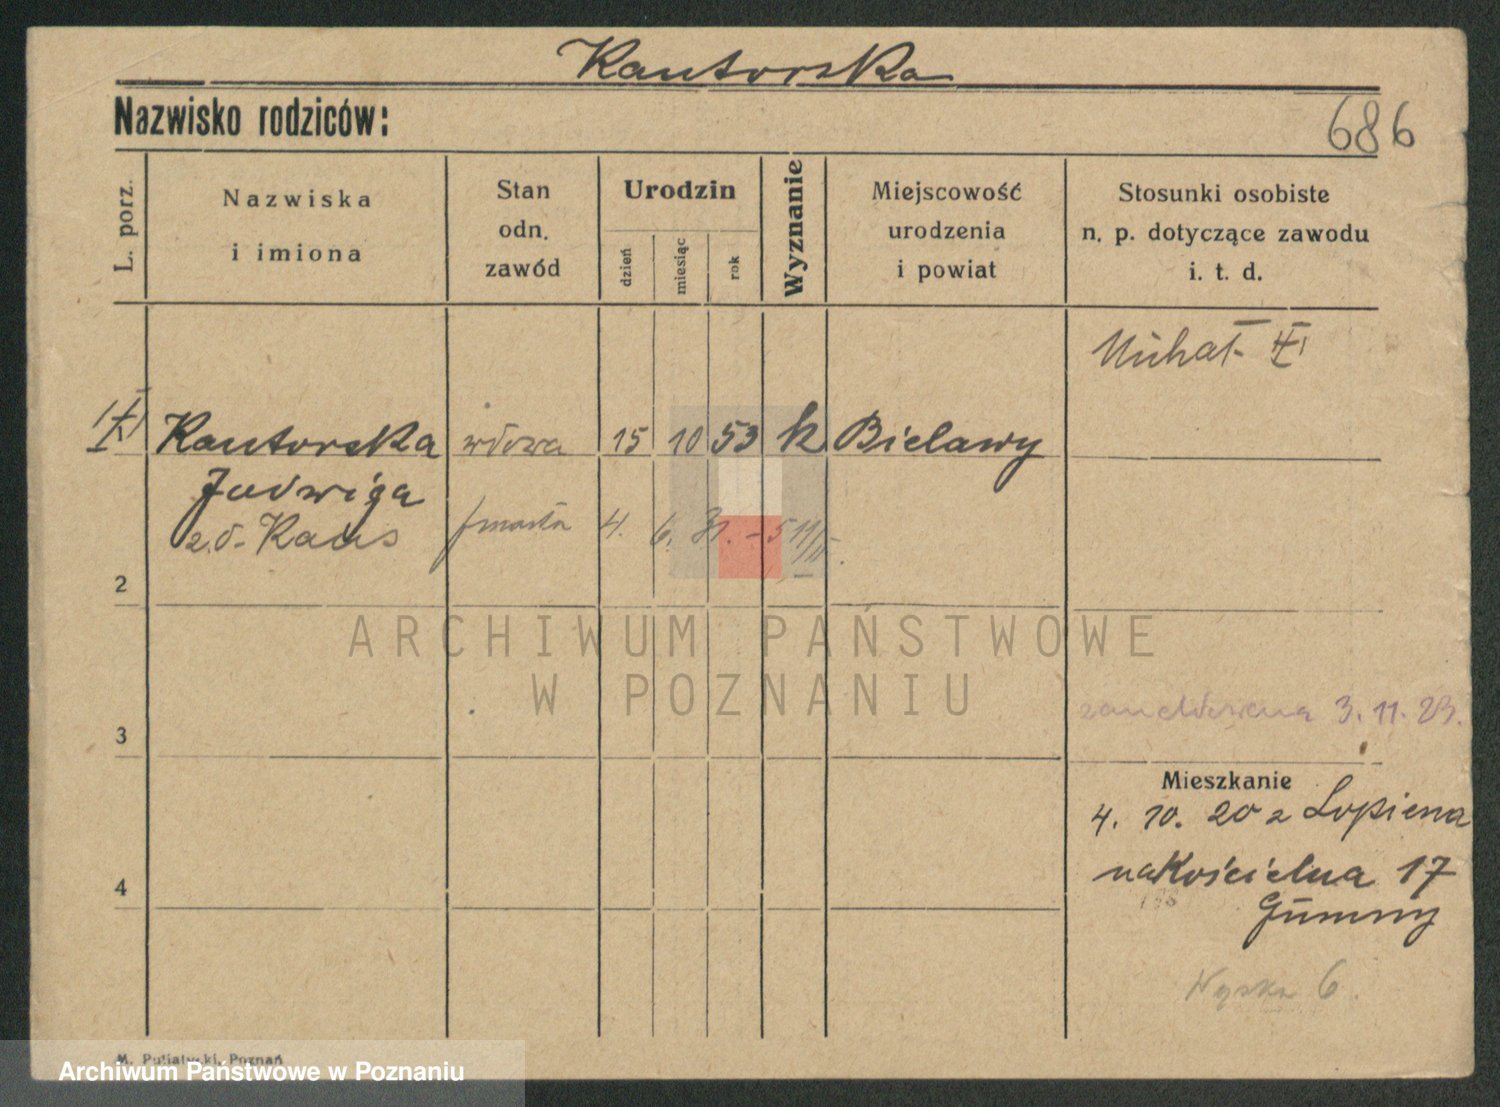 Kantorska
Nazwisko rodziców:
686
L. porz.
Nazwiska
i imiona
Stan
odn.
zawód
Urodzin
dzień
miesiąc
rok
Wyznanie
Miejscowość
urodzenia
i powiat
Stosunki osobiste
n. p. dotyczące zawodu
i. t. d.
Kantorska wdowa 15 10 53 k Bielawy
Jadwiga
z d. Kaus zmarła 4. 6. 31.
2
ARCHIWUM PAŃSTWOWE
W POZNANIU
3. 11. 23.
3
Mieszkanie
4. 10. 20 z Lopiena
na Kościelna 17
Gummy
4
6.
M. Pujiatycki, Poznań
Archiwum Państwowe w Poznaniu